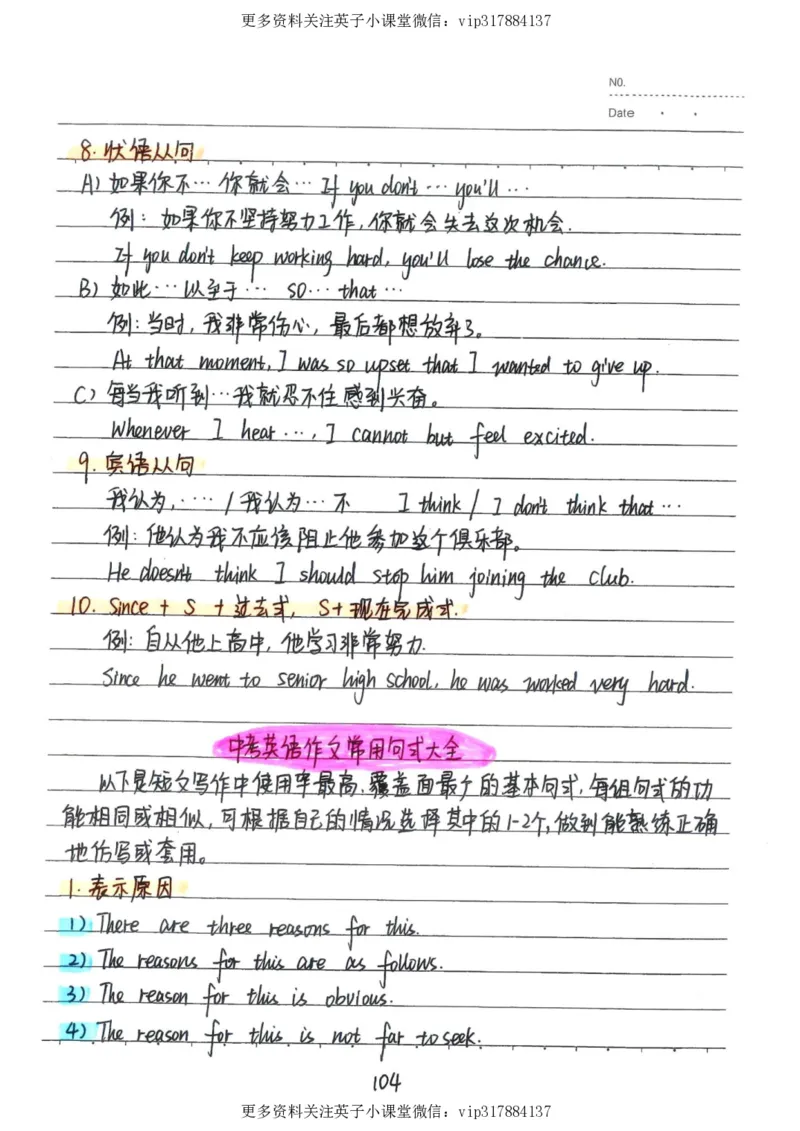 更多资料关注英子小课堂微信：vip317884137
NO.
Date
8. 状语从句
A) 如果你不… 你就会… If you don't … you'll …
例：如果你不坚持努力工作，你就会失去这次机会.
If you don't keep working hard, you'll lose the chance.
B) 如此… 以至于… so… that…
例：当时，我非常伤心，最后都想放弃了。
At that moment, I was so upset that I wanted to give up.
C) 每当我听到…我就忍不住感到兴奋。
Whenever I hear …, I cannot but feel excited.
9. 宾语从句
我认为, …… / 我认为… 不 I think / I don't think that …
例：他认为我不应该阻止他参加这个俱乐部。
He doesn't think I should stop him joining the club.
10. Since + S + 过去式, S+现在完成式.
例：自从他上高中，他学习非常努力.
Since he went to senior high school, he was worked very hard.
中考英语作文常用句式大全
以下是短文写作中使用率最高，覆盖面最广的基本句式，每组句式的功
能相同或相似，可根据自己的情况选择其中的1-2个，做到能熟练正确
地仿写或套用。
1. 表示原因
1) There are three reasons for this.
2) The reasons for this are as follows.
3) The reason for this is obvious.
4) The reason for this is not far to seek.
104
更多资料关注英子小课堂微信：vip317884137